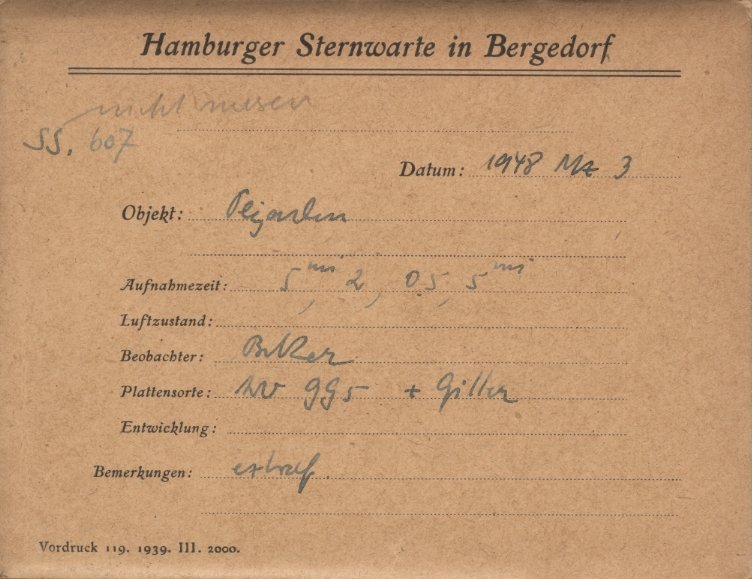 Hamburger Sternwarte in Bergedorf
nicht messen
SS. 607
Datum: 1948 Mz 3
Objekt: Plejaden
Aufnahmezeit: 5 mi, 2, 05, 5 mi
Luftzustand:
Beobachter:
Plattensorte: 995 + Gitter
Entwicklung:
Bemerkungen: extraf.
Vordruck 119. 1939. III. 2000.